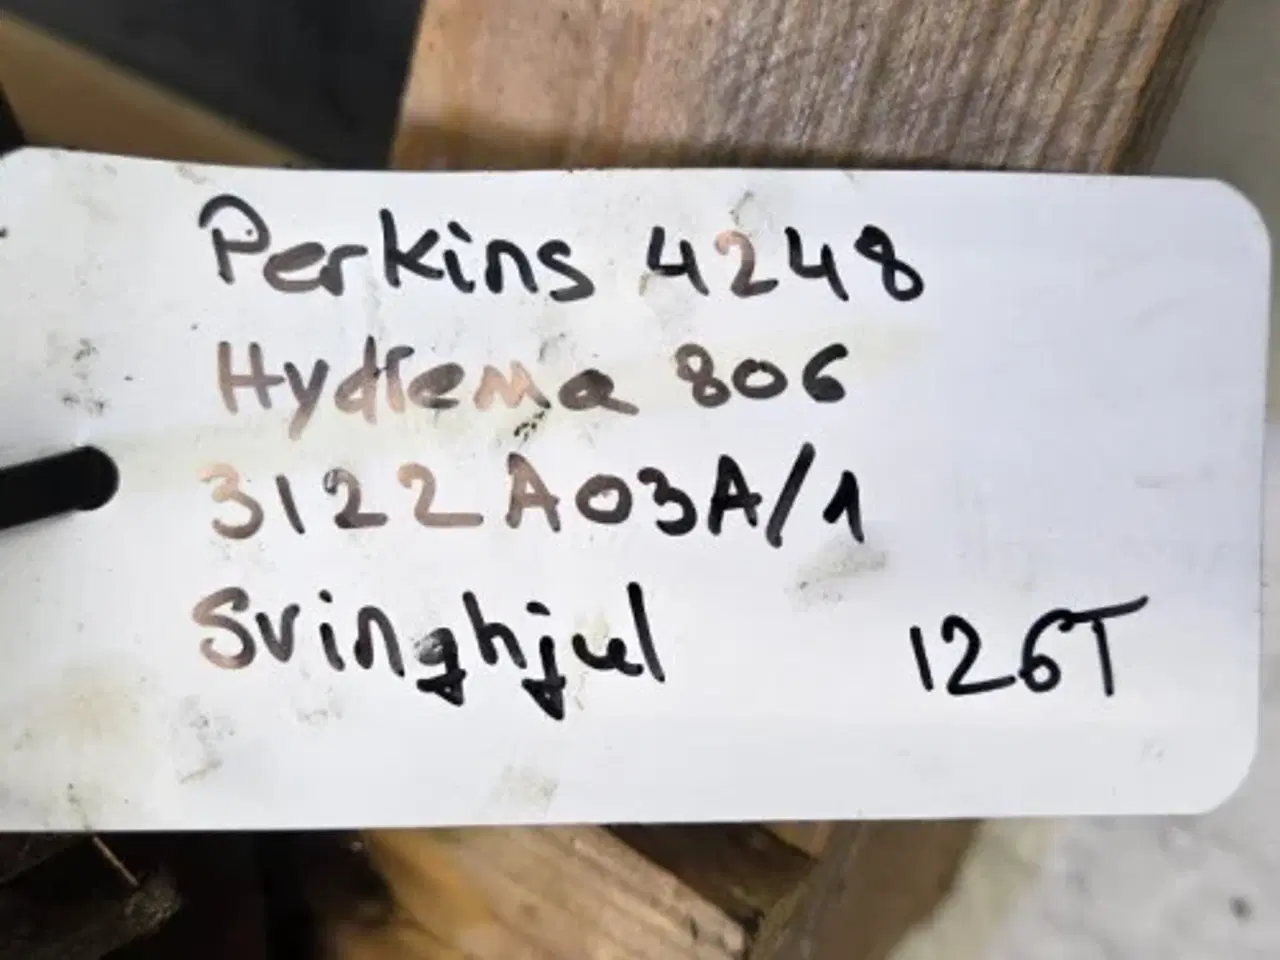 Perkins 4248
Hydrema 806
3122A03A/1
Svinghjul 126T